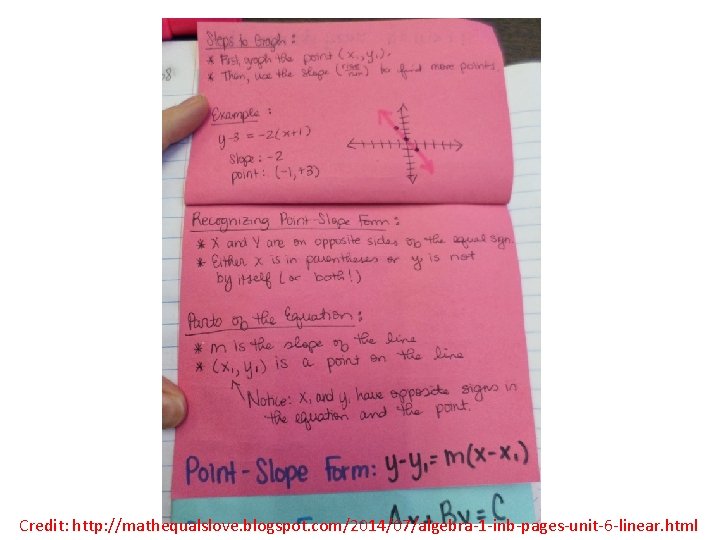 Steps to Graph:
* First, graph the point (x₁, y₁).
* Then, use the slope (rise/run) to find more points.
Example:
y-3 = -2(x+1)
Slope: -2
point: (-1, +3)
Recognizing Point-Slope Form:
* X and Y are on opposite sides of the equal sign.
* Either x is in parentheses or y is not
by itself (or both!)
Parts of the Equation:
* m is the slope of the line
* (x₁, y₁) is a point on the line
Notice: x₁ and y₁ have opposite signs in
the equation and the point.
Point-Slope Form: y-y₁=m(x-x₁)
Ax + By = C
Credit: http://mathequalslove.blogspot.com/2014/07/algebra-1-inb-pages-unit-6-linear.html